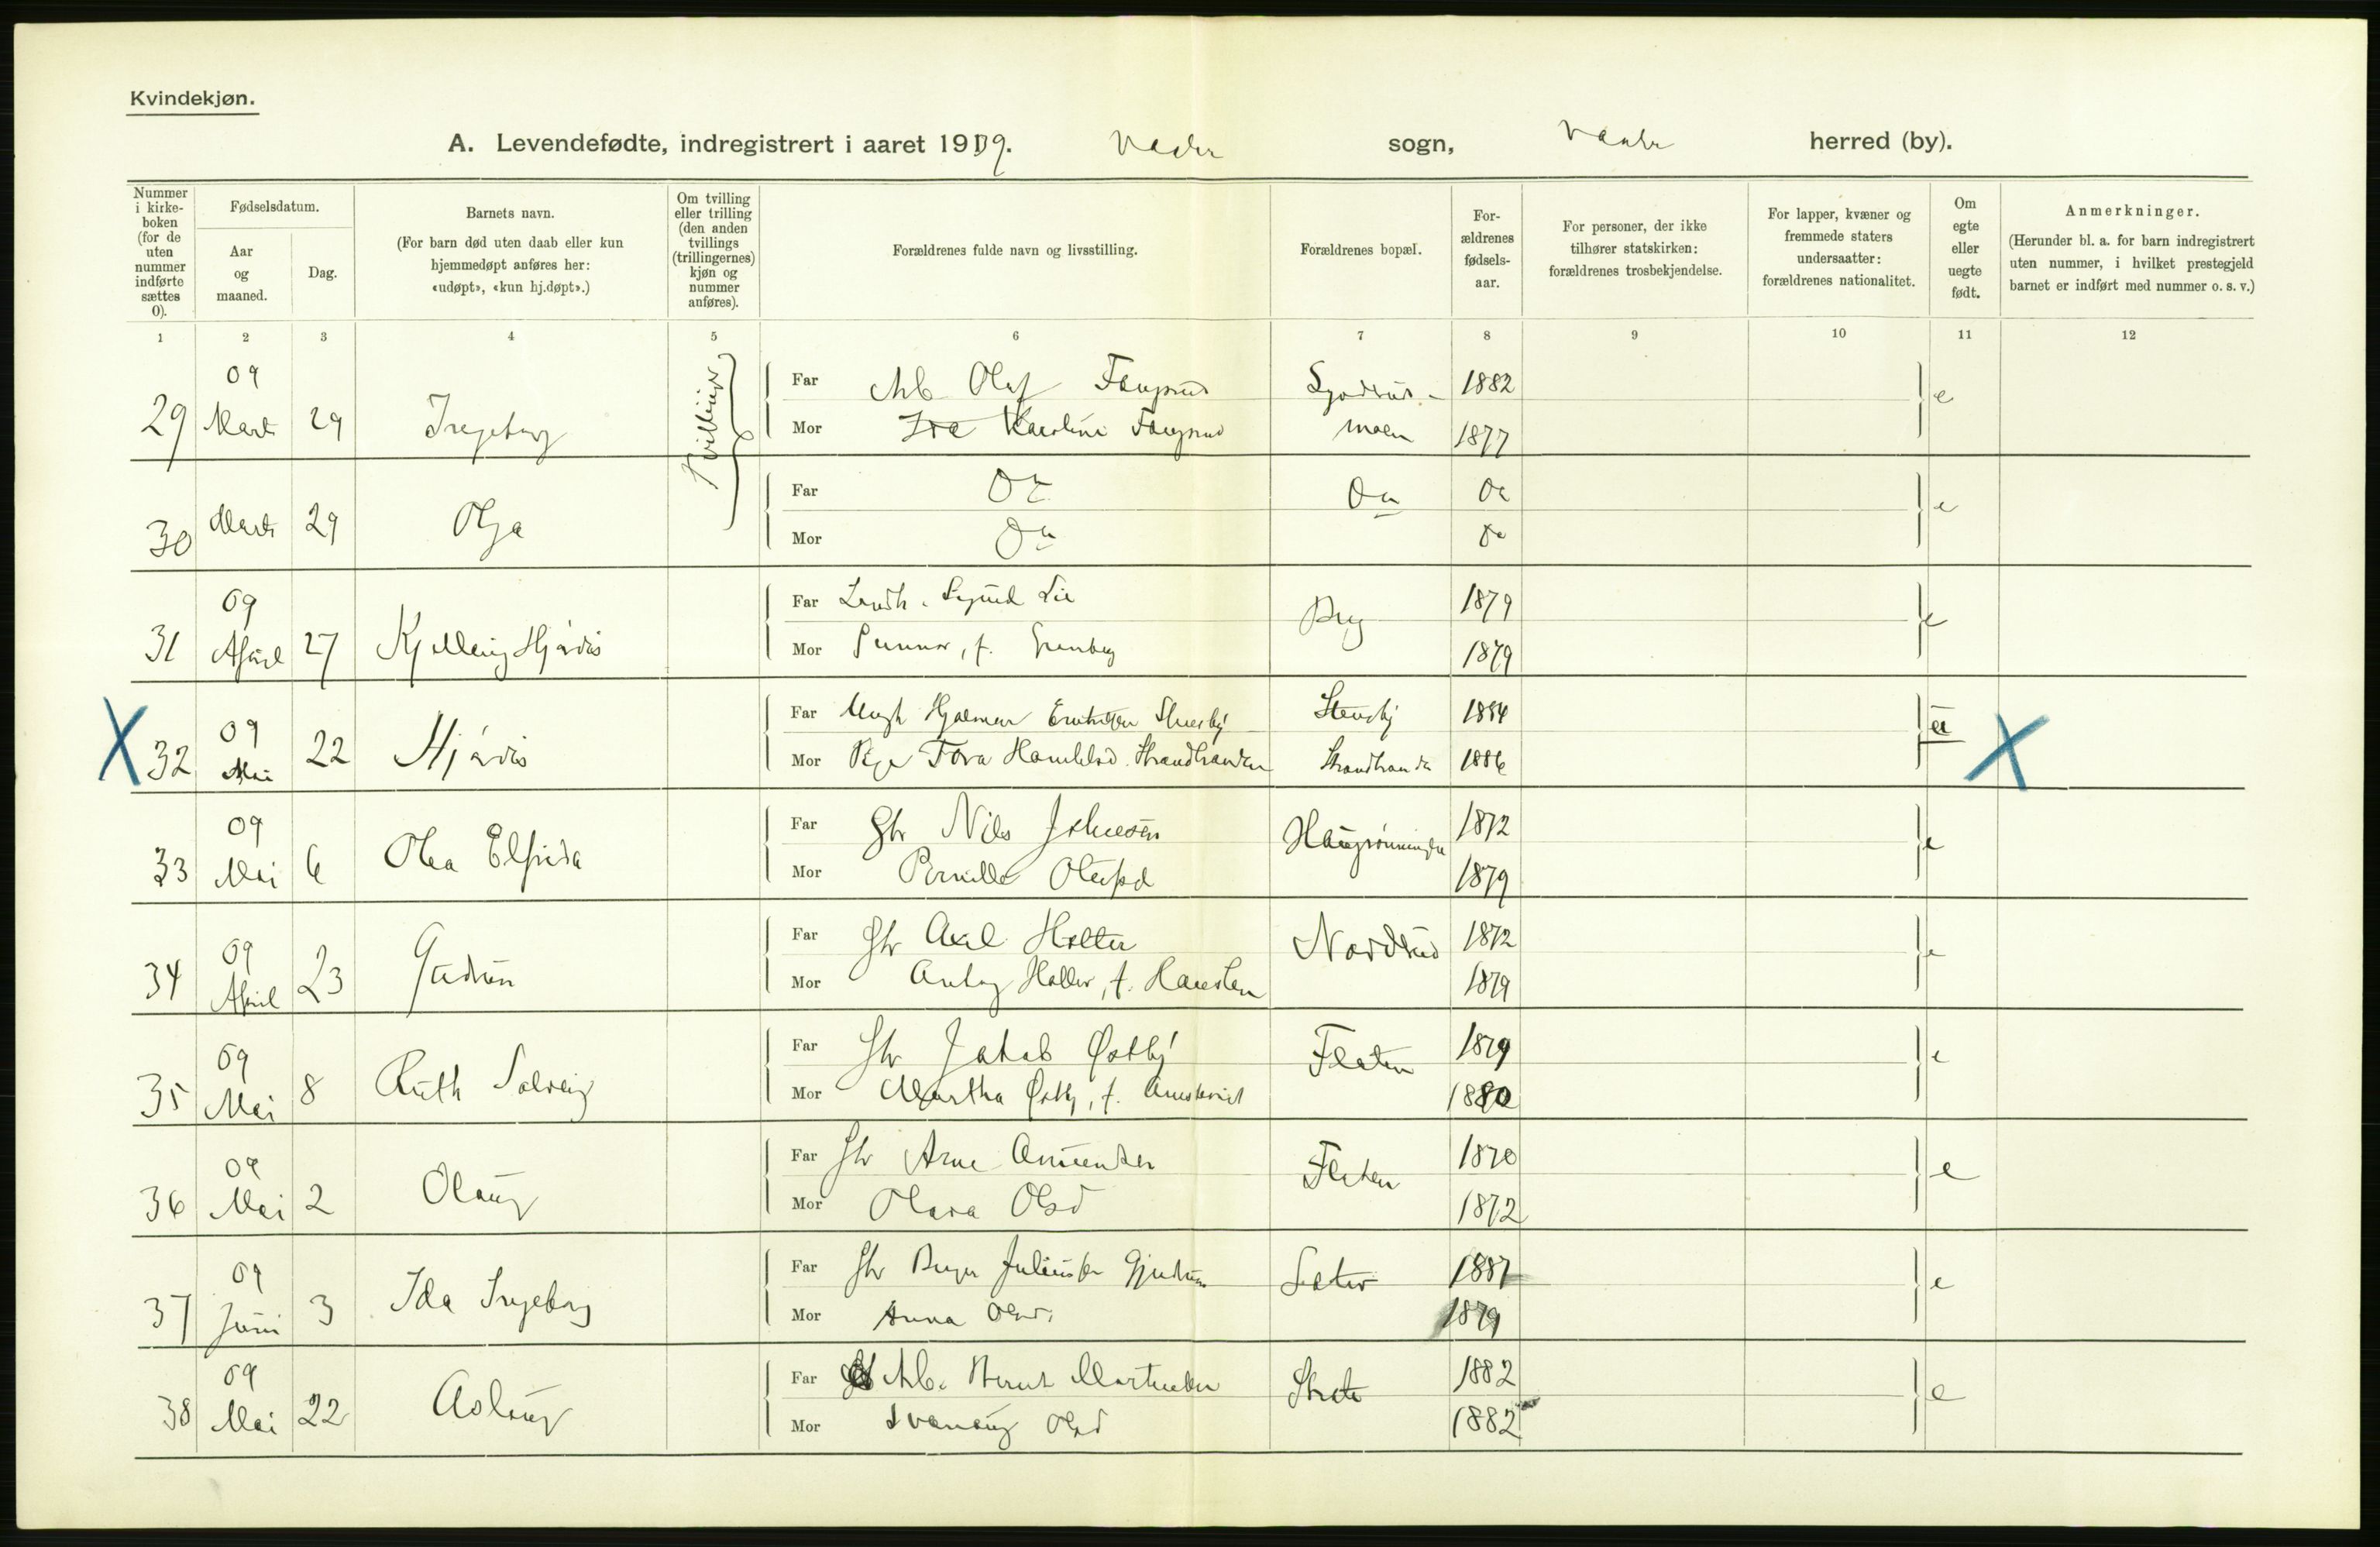 Kvindekjøn.
A. Levendefødte, indregistrert i aaret 1909. Vaaler sogn, Vaaler herred (by).
Nummer i kirkeboken (for de uten nummer indførte sættes 0).
Fødselsdatum.
Aar og maaned.
Dag.
Barnets navn.
(For barn død uten daab eller kun hjemmedøpt anføres her: «udøpt», «kun hj.døpt».)
Om tvilling eller trilling (den anden tvillings (trillingernes) kjøn og nummer anføres).
Forældrenes fulde navn og livsstilling.
Forældrenes bopæl.
Forældrenes fødselsaar.
For personer, der ikke tilhører statskirken: forældrenes trosbekjendelse.
For lapper, kvæner og fremmede staters undersaatter: forældrenes nationalitet.
Om egte eller uegte født.
Anmerkninger.
(Herunder bl. a. for barn indregistrert uten nummer, i hvilket prestegjeld barnet er indført med nummer o. s. v.)
1 2 3 4 5 6 7 8 9 10 11 12
29 09 Marts 29 Ingeborg Tvillinger
Far Arb Olaf Haugsrud 1882 e
Mor Karoline Haugsrud moen 1877
30 Marts 29 Olga
Far Do Do Do e
Mor Do Do
31 09 April 27 Hjørdis
Far Landh. Sigurd Lie Byg 1879 e
Mor Gunnor, f. Grønberg 1879
X 32 09 Mai 22 Hjørdis
Far Ungk Hjalmar Stensby Stensby 1884 u X
Mor Pige Tora Strandbraaten 1886
33 09 Mai 6 Olea Elfrida
Far Gbr Nils Johnsen 1872 e
Mor Pernille Olufsd 1879
34 09 April 23 Gudrun
Far Gbr Axel Holter Nordrud 1872 e
Mor Holter, f. 1879
35 09 Mai 8 Ruth Solveig
Far Gbr Jakob Østby Flaten 1879 e
Mor Martha Østby, f. 1880
36 09 Mai 2 Olaug
Far Gbr Arne Amundsen Flaten 1870 e
Mor Olava Olsd 1872
37 09 Juni 3 Ida Ingeborg
Far Gbr Birger Juliussen 1887 e
Mor Anna Olsd. 1879
38 09 Mai 22 Aslaug
Far Arb. Bernt Martinsen 1882 e
Mor Svanaug Olsd 1882